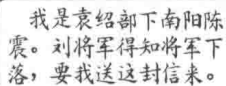 我是袁绍部下南阳陈
震。刘将军得知将军下
落，要我送这封信来。